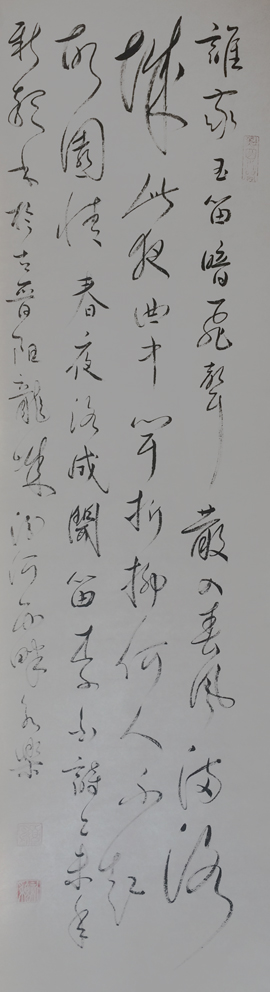 誰家玉笛暗飛聲散入春風滿洛
城此夜曲中聞折柳何人不起
故園情春夜洛城聞笛李白詩乙未年
新書於古晉陽龍城汾河西畔